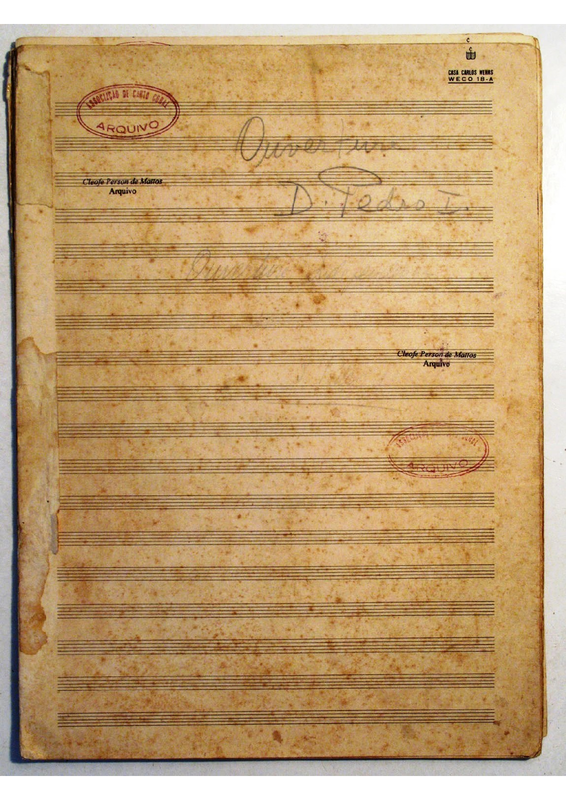 CASA CARLOS WEHRS
WECO 18-A
ASSOCIAÇÃO DE CANTO CORAL
ARQUIVO
Ouverture
Cleofe Person de Mattos
Arquivo
D. Pedro I.
Cleofe Person de Mattos
Arquivo
ARQUIVO